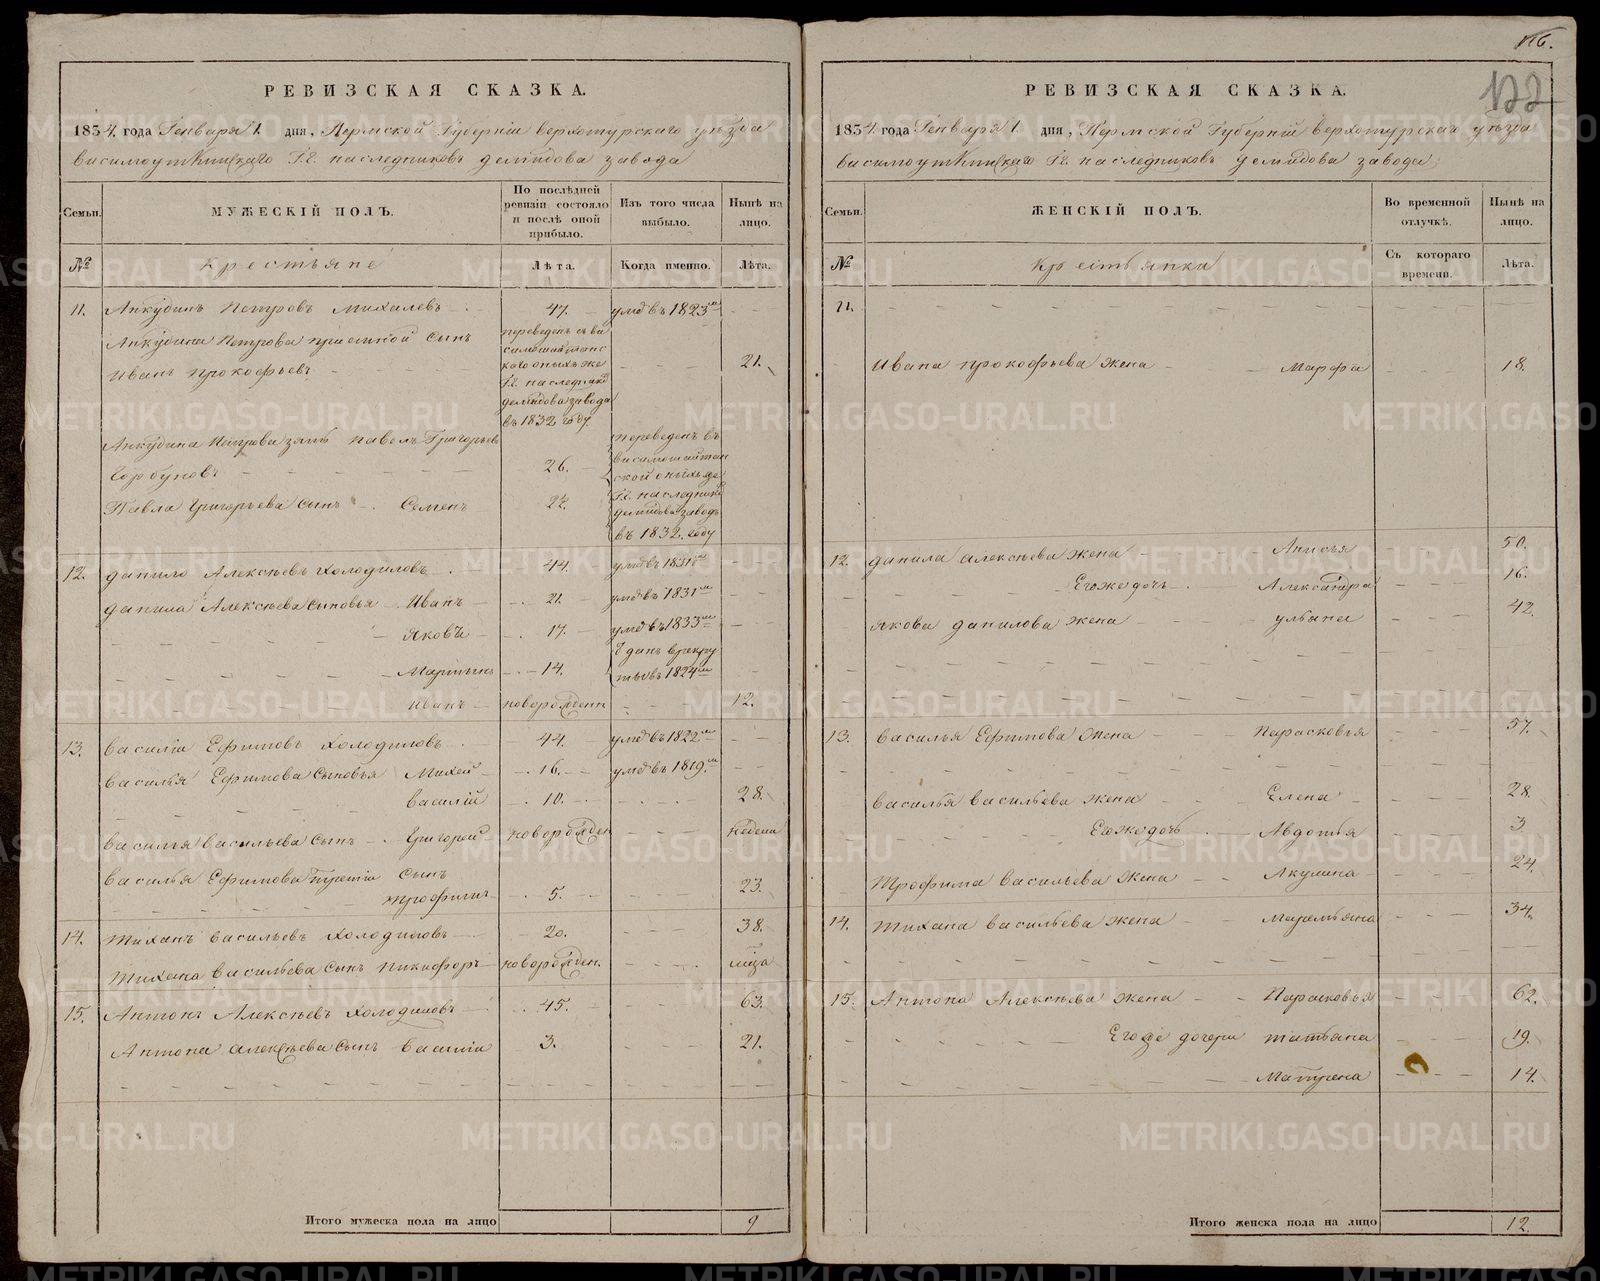 РЕВИЗСКАЯ СКАЗКА.
1834. года Генваря 1. дня, Пермской Губерніи верхотурскаго уѣзда
висимоуткинскаго Г.г. наследниковъ демидова завода
Семьи.
МУЖЕСКІЙ ПОЛЪ.
По послѣдней ревизіи состояло и послѣ оной прибыло.
Изъ того числа выбыло.
Нынѣ на лицо.
№
Крестьяне
Лѣта.
Когда именно.
Лѣта.
11. Анкудинъ Петровъ Михалевъ 47. умѣ въ 1823м
Анкудина Петрова приемной сынъ
Иванъ Прокофьевъ переведенъ съ ви
симошайтанс
кого оныхъ же
Г.г. наследник
демидова завода
въ 1832 году 21.
Анкудина Петрова зять Павелъ Григорьевъ
Горбуновъ 26. переведенъ въ
висимошайтан
ской оныхъ же
Павла Григорьева сынъ Семенъ 22. Г.г. наследник
демидова заводъ
въ 1832. году
12. данило Алексѣевъ Холодиловъ 44. умѣ въ 1831м
данила Алексѣева сыновья Иванъ 21. умѣ въ 1831м
Яковъ 17. умѣ въ 1833м
Мартынъ 14. Зданъ врекру
тывъ 1824м
Иванъ новорожденн 12.
13. василіи Ефимовъ Холодиловъ 44. умѣ въ 1822м
василья Ефимова сыновья Михей 16. умѣ въ 1819.м
василій 10. 28.
василья васильева сынъ Григорей новорожден неделя
василья Ефимова третіи сынъ
трофимъ 5. 23.
14. тиханъ васильевъ Холодиловъ 20. 38.
тихана васильева сынъ Никифоръ новорожден.
15. Антонъ Алексѣевъ Холодиловъ 45. 63.
Антона алексѣева сынъ василіи 3. 21.
Итого мужеска пола на лицо 9
116.
122
РЕВИЗСКАЯ СКАЗКА.
1834. года Генваря 1. дня, Пермской Губерніи верхотурскаго уѣзда
висимоуткинскаго Г.г. наследниковъ демидова завода
Семьи.
ЖЕНСКІЙ ПОЛЪ.
Во временной отлучкѣ.
Нынѣ на лицо.
№
Крестьянки
Съ котораго времени.
Лѣта.
11.
Ивана прокофьева жена Марфа 18.
12. данила алексѣева жена Анисья 50.
Егоже дочь Александра 16.
якова данилова жена ульяна 42.
13. василья Ефимова жена Парасковья 57.
василья васильева жена Елена 28.
Егоже дочь Авдотья 3
трофима васильева жена Акулина 24.
14. тихана васильева жена Маремьяна 34.
15. Антона Алексѣева жена Парасковья 62.
Егоже дочери татьяна 19.
Матрена 14.
Итого женска пола на лицо 12.
METRIKI.GASO-URAL.RU